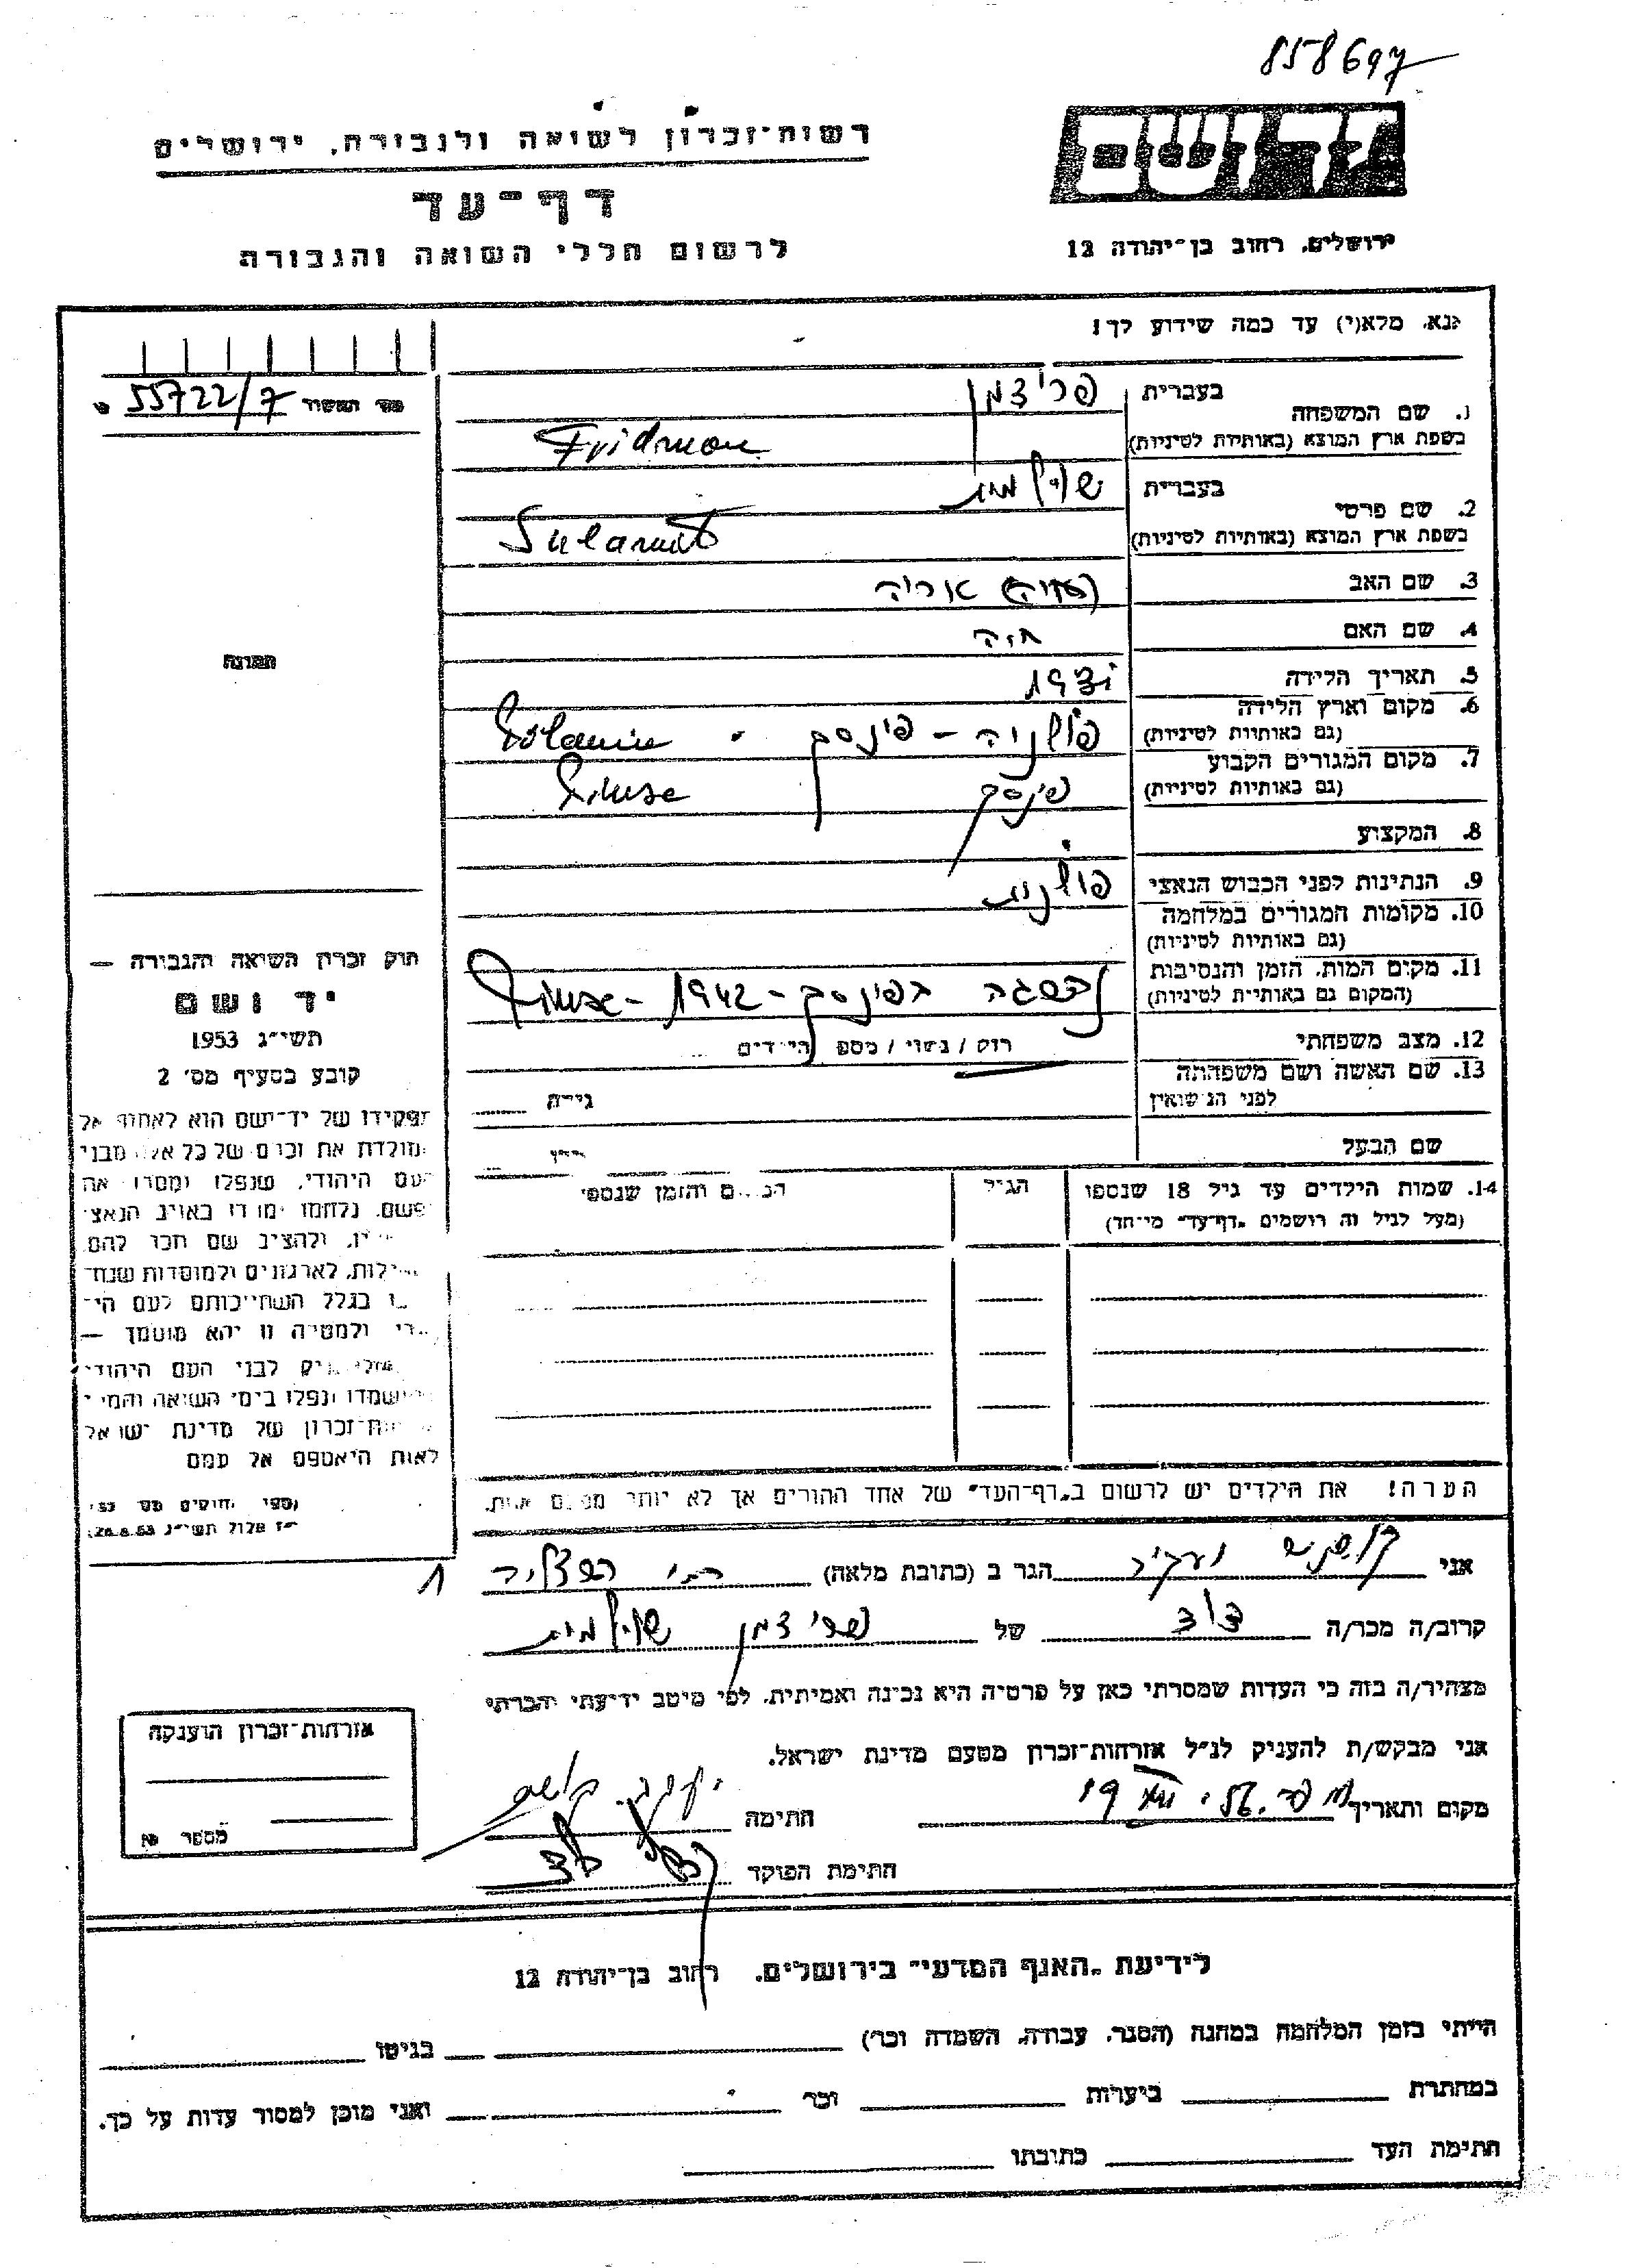 858697
רשות־זכרון לשואה ולגבורה, ירושלים
יד ושם
דף־עד
לרשום חללי השואה והגבורה
ירושלים, רחוב בן־יהודה 12
נא, מלא(י) עד כמה שידוע לך!
55722/7
1. שם המשפחה
בעברית
פרידמן
בשפת ארץ המוצא (באותיות לטיניות)
Fridman
2. שם פרטי
בעברית
שולמית
בשפת ארץ המוצא (באותיות לטיניות)
Sulamit
3. שם האב
אריה
4. שם האם
חיה
5. תאריך הלידה
6. מקום וארץ הלידה
(גם באותיות לטיניות)
פולניה - פינסק
7. מקום המגורים הקבוע
(גם באותיות לטיניות)
פינסק
8. המקצוע
9. הנתינות לפני הכבוש הנאצי
פולנית
10. מקומות המגורים במלחמה
(גם באותיות לטיניות)
11. מקום המות, הזמן והנסיבות
(המקום גם באותיות לטיניות)
נספתה בפינסק - 1942 -
12. מצב משפחתי
רוק / נשוי / מספר הילדים
13. שם האשה ושם משפחתה
לפני הנישואין
גילה
שם הבעל
גילו
14. שמות הילדים עד גיל 18 שנספו
(מעל לגיל זה רושמים „דף־עד" מיוחד)
הגיל
המקום והזמן שנספו
תמונה
חוק זכרון השואה והגבורה —
יד ושם
תשי״ג 1953
קובע בסעיף מס׳ 2
תפקידו של יד־ושם הוא לאסוף אל
המולדת את זכרם של כל אלה מבני
העם היהודי, שנפלו ומסרו את
נפשם, נלחמו ומרדו באויב הנאצי
ולהציב שם וזכר להם,
לקהילות, לארגונים ולמוסדות שנחרבו
בגלל השתייכותם לעם היהודי
ולמטרה זו יהא מוסמך —
להעניק לבני העם היהודי
שהושמדו ונפלו בימי השואה והמרי
אזרחות־זכרון של מדינת ישראל
לאות היאספם אל עמם
הערה! את הילדים יש לרשום ב„דף־העד" של אחד ההורים אך לא יותר מפעם אחת.
אני
הגר ב (כתובת מלאה)
קרוב/ה מכר/ה
דוד
של
פרידמן שולמית
מצהיר/ה בזה כי העדות שמסרתי כאן על פרטיה היא נכונה ואמיתית, לפי מיטב ידיעתי והכרתי
אני מבקש/ת להעניק לנ״ל אזרחות־זכרון מטעם מדינת ישראל.
מקום ותאריך
חתימה
חתימת הפוקד
אזרחות־זכרון הוענקה
מספר №
לידיעת „האגף המדעי" בירושלים, רחוב בן־יהודה 12
הייתי בזמן המלחמה במחנה (הסגר, עבודה, השמדה וכר׳)
בגיטו
במחתרת
ביערות
וכר׳
ואני מוכן למסור עדות על כך.
חתימת העד
כתובתו